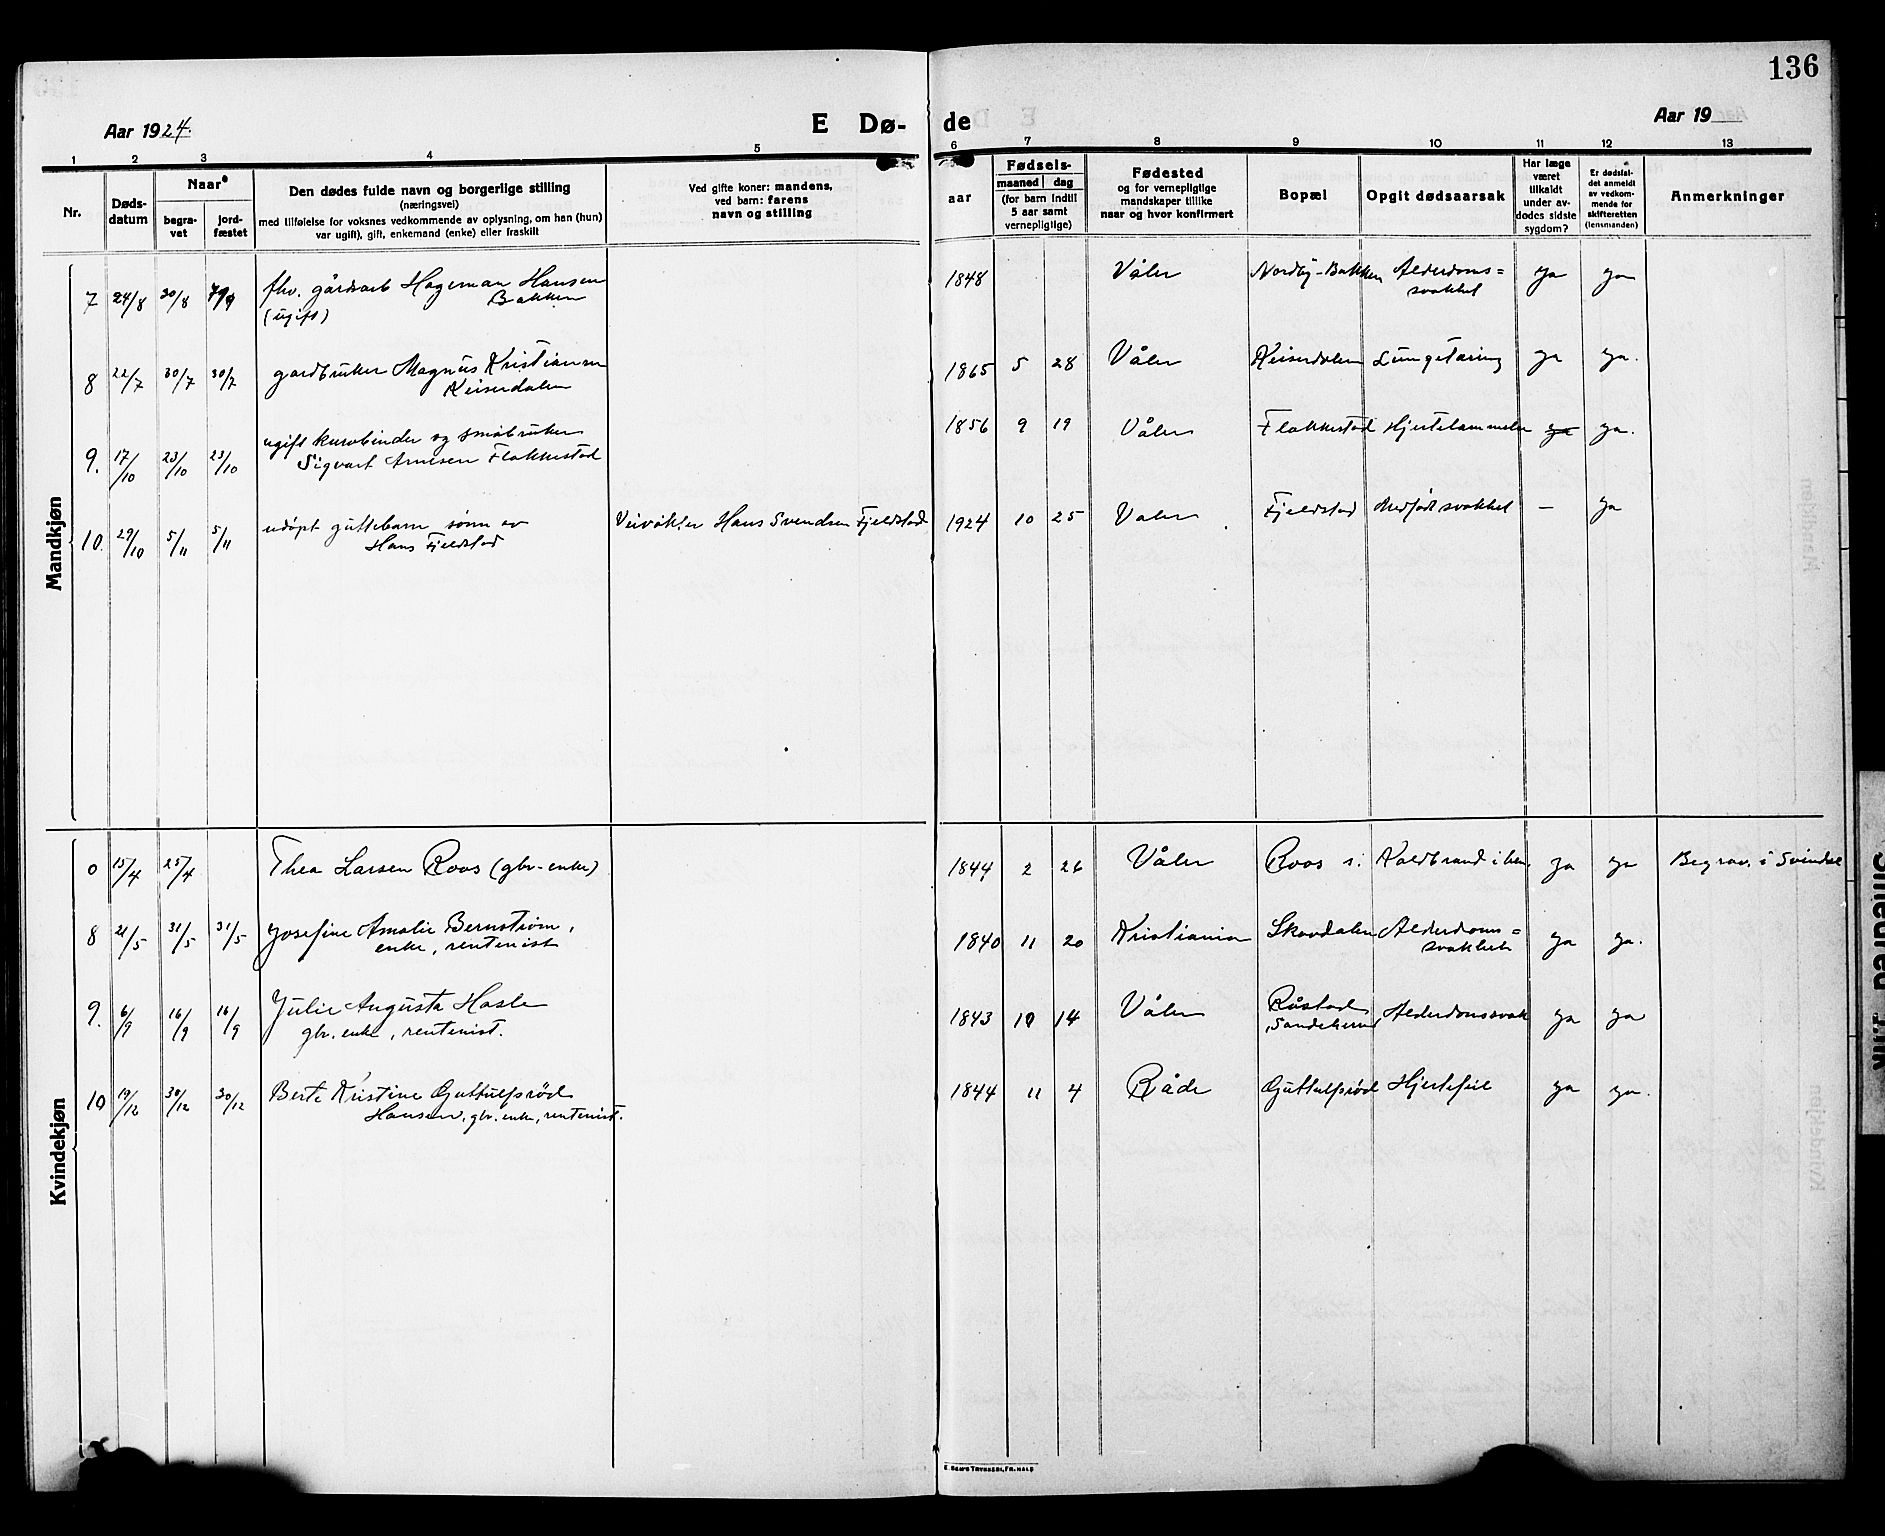 136
Aar 1924.
E Dø-
de
Aar 19
1 2 3 4 5 6 7 8 9 10 11 12 13
Nr.
Døds-
datum
Naar
begra-
vet
jord-
fæstet
Den dødes fulde navn og borgerlige stilling
(næringsvei)
med tilføielse for voksnes vedkommende av oplysning, om han (hun)
var ugift), gift, enkemand (enke) eller fraskilt
Ved gifte koner: mandens,
ved barn: farens
navn og stilling
aar
Fødsels-
maaned dag
(for barn indtil
5 aar samt
vernepligtige)
Fødested
og for vernepligtige
mandskaper tillike
naar og hvor konfirmert
Bopæl
Opgit dødsaarsak
Har læge
været
tilkaldt
under av-
dødes sidste
sygdom?
Er dødsfal-
det anmeldt
av vedkom-
mende for
skifteretten
(lensmanden)
Anmerkninger
Mandkjøn
7 24/8 30/8 7/9 fhv. gårdsarb Hageman Hansen
Bakken
(ugift)
1848 Våler Nordby-Bakken Alderdoms=
svakhet ja ja
8 22/7 30/7 30/7 gardbruker Magnus Kristiansen
Keiserdalen
1865 5 28 Våler Keiserdalen Lungetæring ja ja.
9. 17/10 23/10 23/10 ugift kurvbinder og småbruker
Sigvart Arnesen Flakkestad
1856 9 19 Våler Flakkestad Hjertelammelse ja ja.
10. 29/10 5/11 5/11 udøpt guttebarn sønn av
Hans Fjeldstad
Veivokter Hans Svendsen Fjeldstad
1924 10 25 Våler Fjeldstad Medfødt svakhet — ja
Kvindekjøn
0 15/4 25/4 Thea Larsen Roos (gbr-enke)
1844 2 26 Våler Roos s: Koldbrand i ben ja ja Begrav. i Svindal
8 21/5 31/5 31/5 Josefine Amalie Bernstrøm,
enke, rentenist
1840 11 20 Kristiania Skovdalen Alderdoms=
svakhet ja ja.
9. 6/9 16/9 16/9 Julie Augusta Hasle
gbr. enke, rentenist.
1843 10 14 Våler Råstad
Sandeherred Alderdomssvak ja ja
10 19/12 30/12 30/12 Berte Kristine Guttulfsrød
Hansen, gbr. enke, rentenist.
1844 11 4 Råde Guttulfsrød Hjertefeil ja ja.
E. SEM'S TRYKKERI, FR.HALD